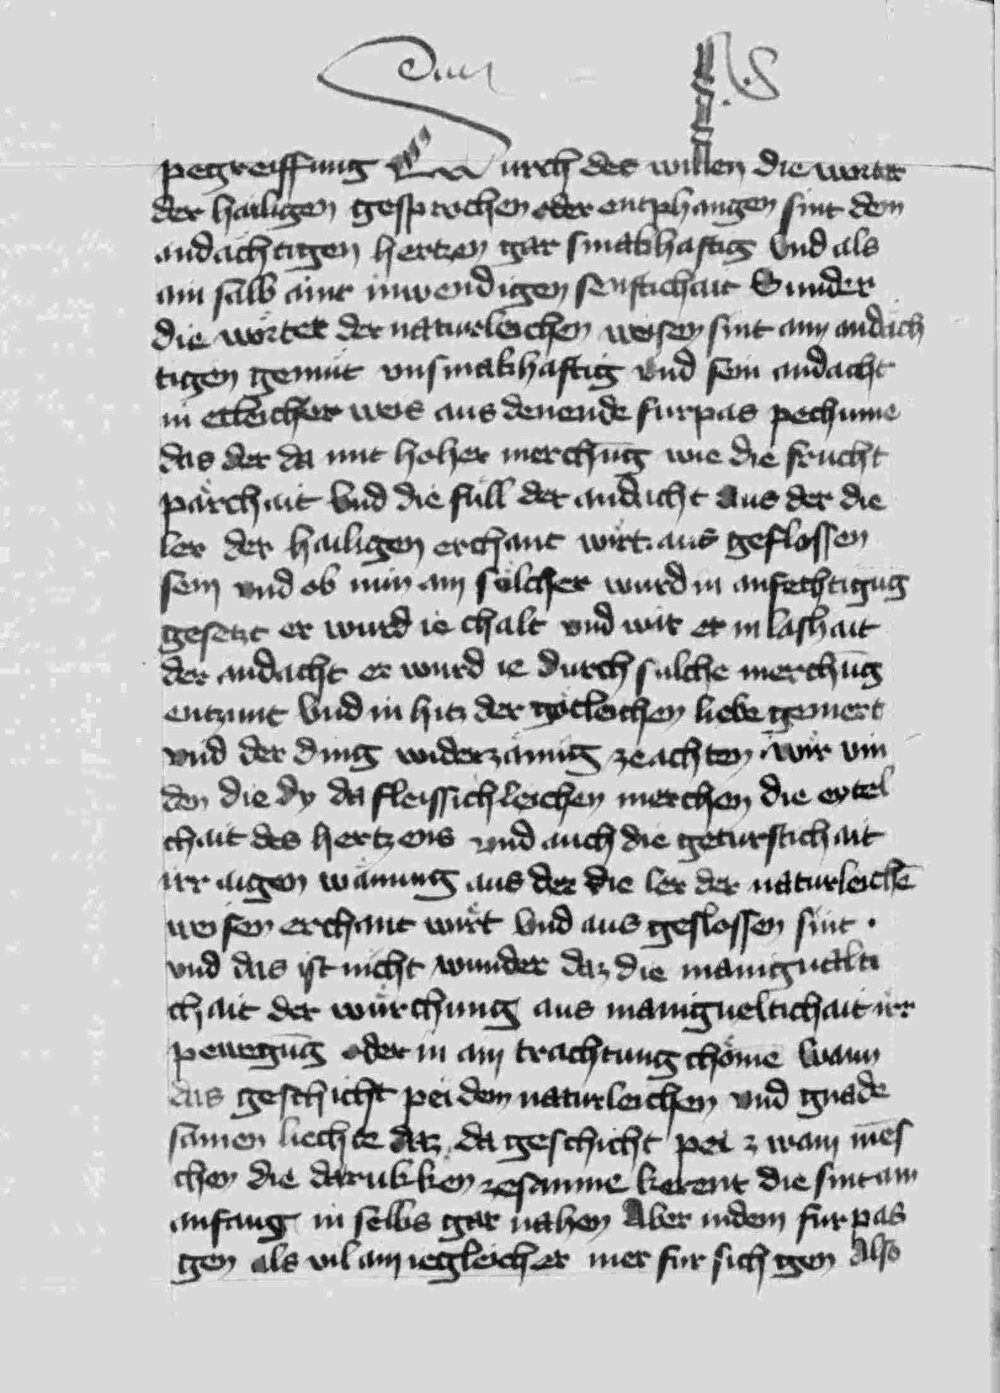 pegreiffung Durch des willen die wörter
der hailigen gesprochen oder enphangen sint dem
andächtigen hertzen gar smakhaftig Vnd als
ain salb ainr inwendigen senftichait Sunder
die wörter der naturleichen weisen sint aim andäch
tigen gemüt vnsmakhaftig vnd sein andacht
in etleicher weis aus denende furpas pechume
das der da mit hoher merchūg wie die frucht
pärchait Vnd die füll der andacht Aus der die
ler der hailigen erchant wirt. aus geflossen
sein vnd ob nun ain sölcher wurd in anfechtigūg
gesetzt er wurd ie chalt vnd wär er in lashait
der andacht er wurd ie durch sülche merchūg
entzunt Vnd in hitz der götleichen liebe gemert
vnd der ding widerzämig ze achten wir vin
den die dy da fleissichleichen merchen die eytel
chait des hertzens vnd auch die geturstichait
irr aigen wänung aus der die ler der naturleichē
weisen erchant wirt Vnd aus geflossen sint .
vnd das ist nicht wunder daz die manigualti
chait der würchung aus manigueltichait irr
pewegūg oder in ain trachtung chöme Wann
das geschicht pei dem naturleichen vnd gnade
samen liechte daz da geschicht pei zwain mēs
chen die darukken zesamme kerent die sint am
anfang in selbs gar nahen Aber indem fur pas
gen als vil ain iegleicher mer fur sich gen Also